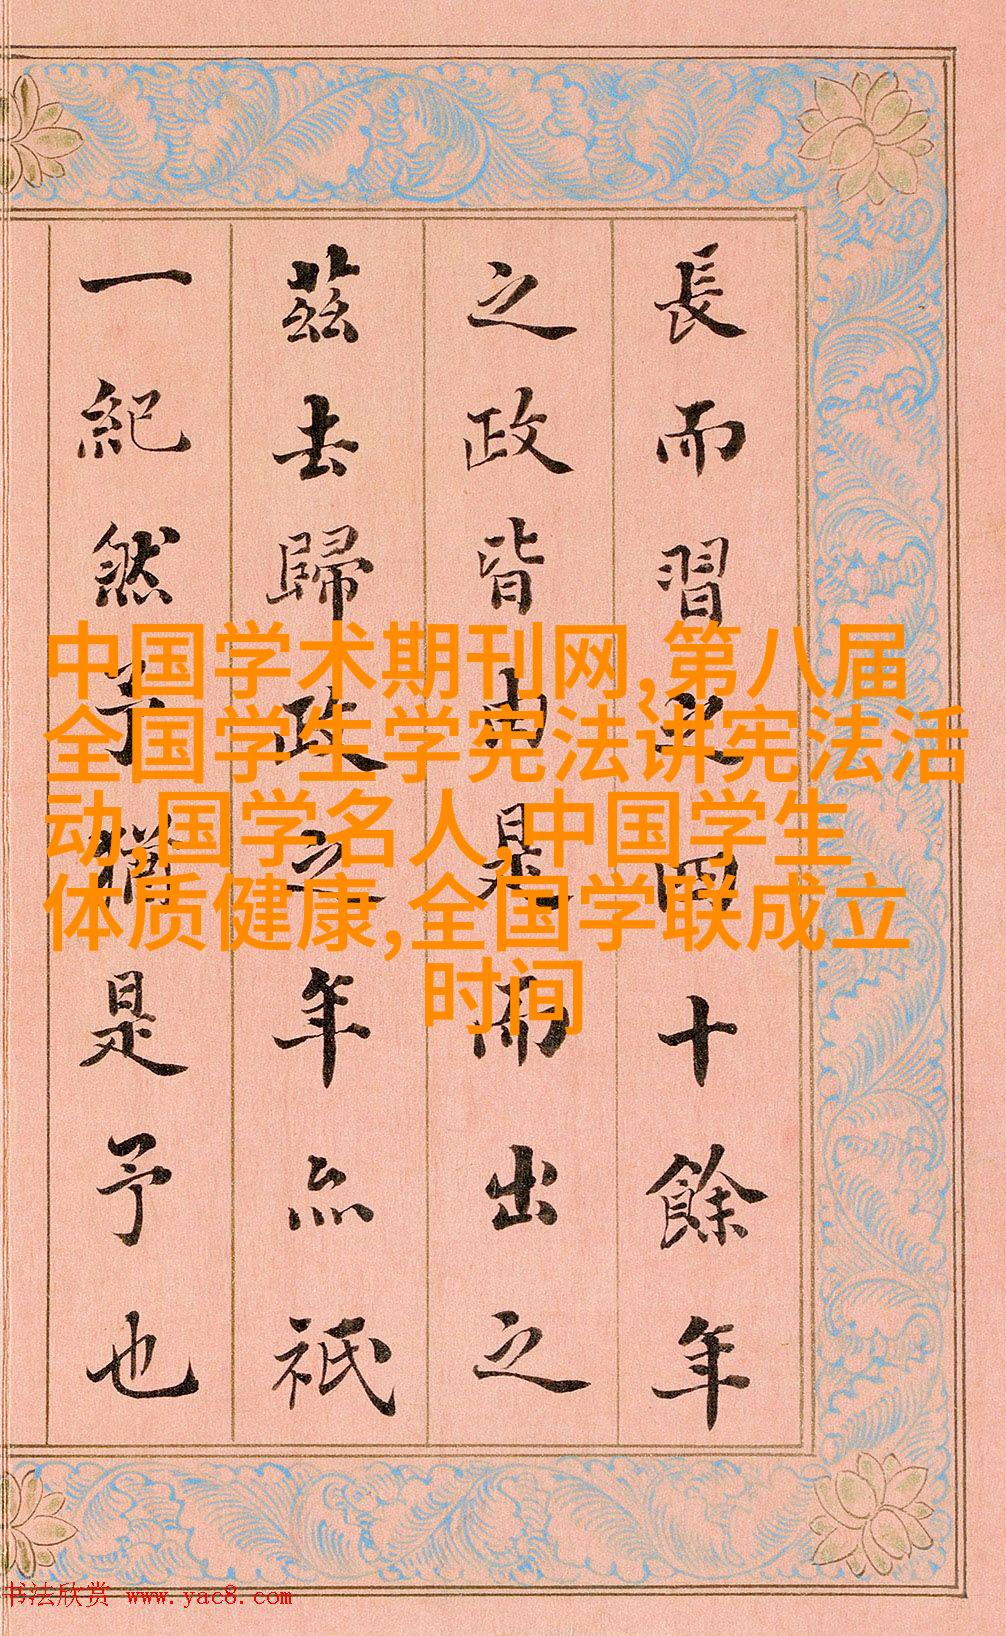 長而習之四十餘年
之政皆由是而出之
茲去歸政之年亦祇
一紀然予猶是予也
中国学术期刊网,第八届
全国学生学宪法讲宪法活
动,国学名人,中国学生
体质健康,全国学联成立
时间
书法欣赏 www.yac8.com